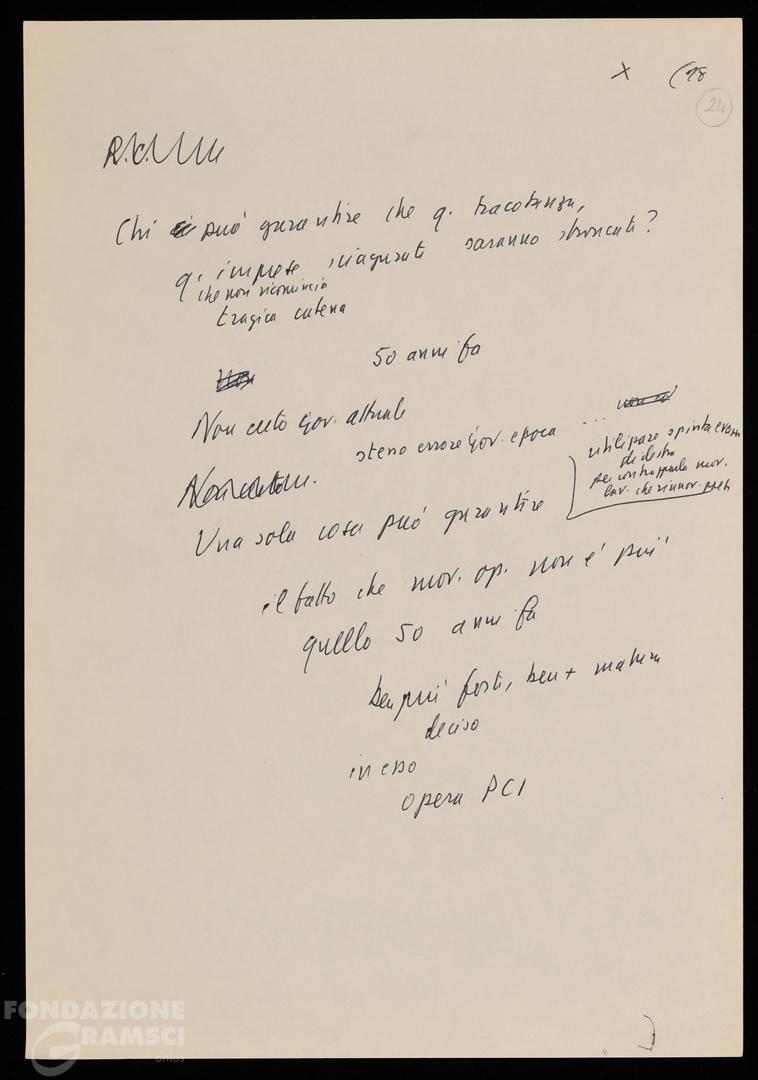 X (98
24
Chi può garantire che q. tracotanza,
q. imprese sciagurate saranno stroncate?
che non ricomincia
tragica catena
50 anni fa
Non certo gov. attuale
stesso errore gov. epoca ...
utilizzare spinta evers.
di destra
per contrapporla mov.
lav. che rinnov. paese
Una sola cosa può garantire
il fatto che mov. op. non è più
quello 50 anni fa
ben più forte, ben + maturo
deciso
in esso
opera PCI
FONDAZIONE
GRAMSCI
onlus